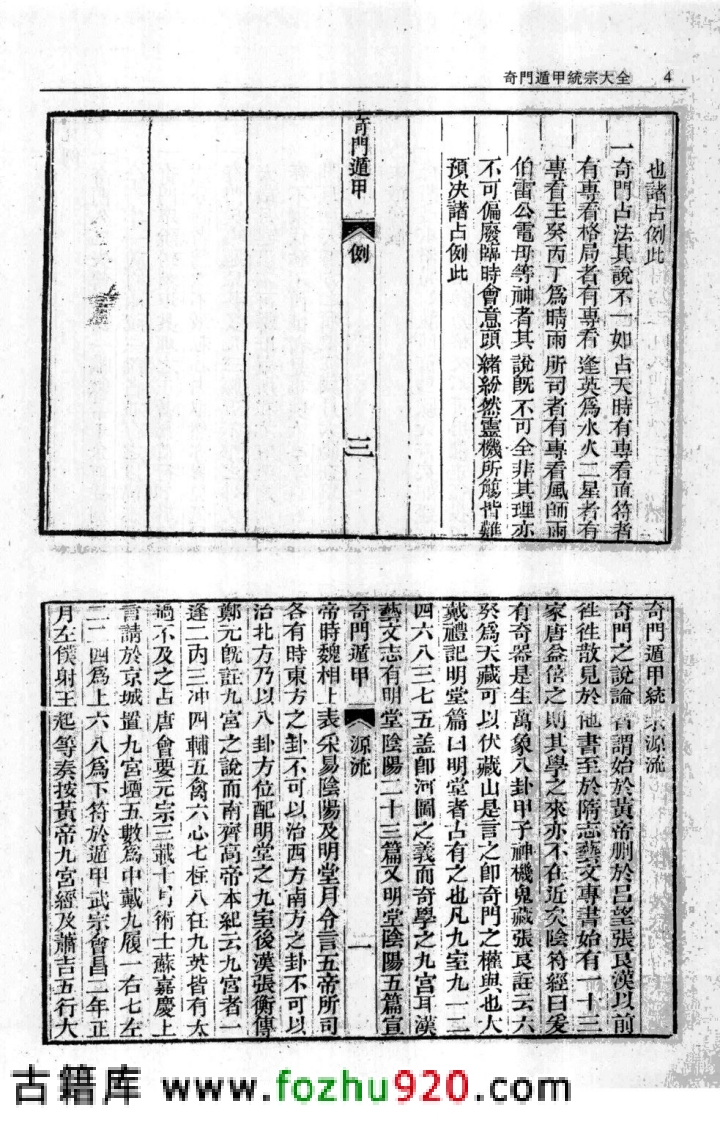 奇門遁甲統宗大全 4
也諸占例此
一奇門占法其說不一如占天時有專看直符者
有專看格局者有專看逢英爲水火二星者有
專看壬癸丙丁爲晴雨所司者有專看風師雨
伯雷公電母等神者其說既不可全非其理亦
不可偏廢臨時會意頭緒紛然靈機所觸皆難
預決諸占例此
奇門遁甲 例 三
奇門遁甲統宗源流
奇門之說論者謂始於黃帝刪於呂望張良漢以前
徃徃散見於他書至於隋志藝文專書始有一十三
家唐益倍之則其學之來亦不在近矣陰符經曰爰
有奇器是生萬象八卦甲子神機鬼藏張良註云六
癸爲天藏可以伏藏由是言之卽奇門之權輿也大
戴禮記明堂篇曰明堂者古有之也凡九室九一二
四六八三七五盖卽河圖之義而奇學之九宮耳漢
藝文志有明堂陰陽二十三篇又明堂陰陽五篇宣
奇門遁甲 源流 一
帝時魏相上表采易陰陽及明堂月令言五帝所司
各有時東方之卦不可以治西方南方之卦不可以
治北方乃以八卦方位配明堂之九室後漢張衡傳
鄭元旣註九宮之說而南齊高帝本紀云九宮者一
逢二丙三冲四輔五禽六心七柱八任九英皆有太
過不及之占唐會要元宗三載十月術士蘇嘉慶上
言請於京城置九宮壇五數爲中戴九履一右七左
三二四爲上六八爲下符於遁甲武宗會昌二年正
月左僕射王起等奏按黃帝九宮經及蕭吉五行大
古籍库 www.fozhu920.com